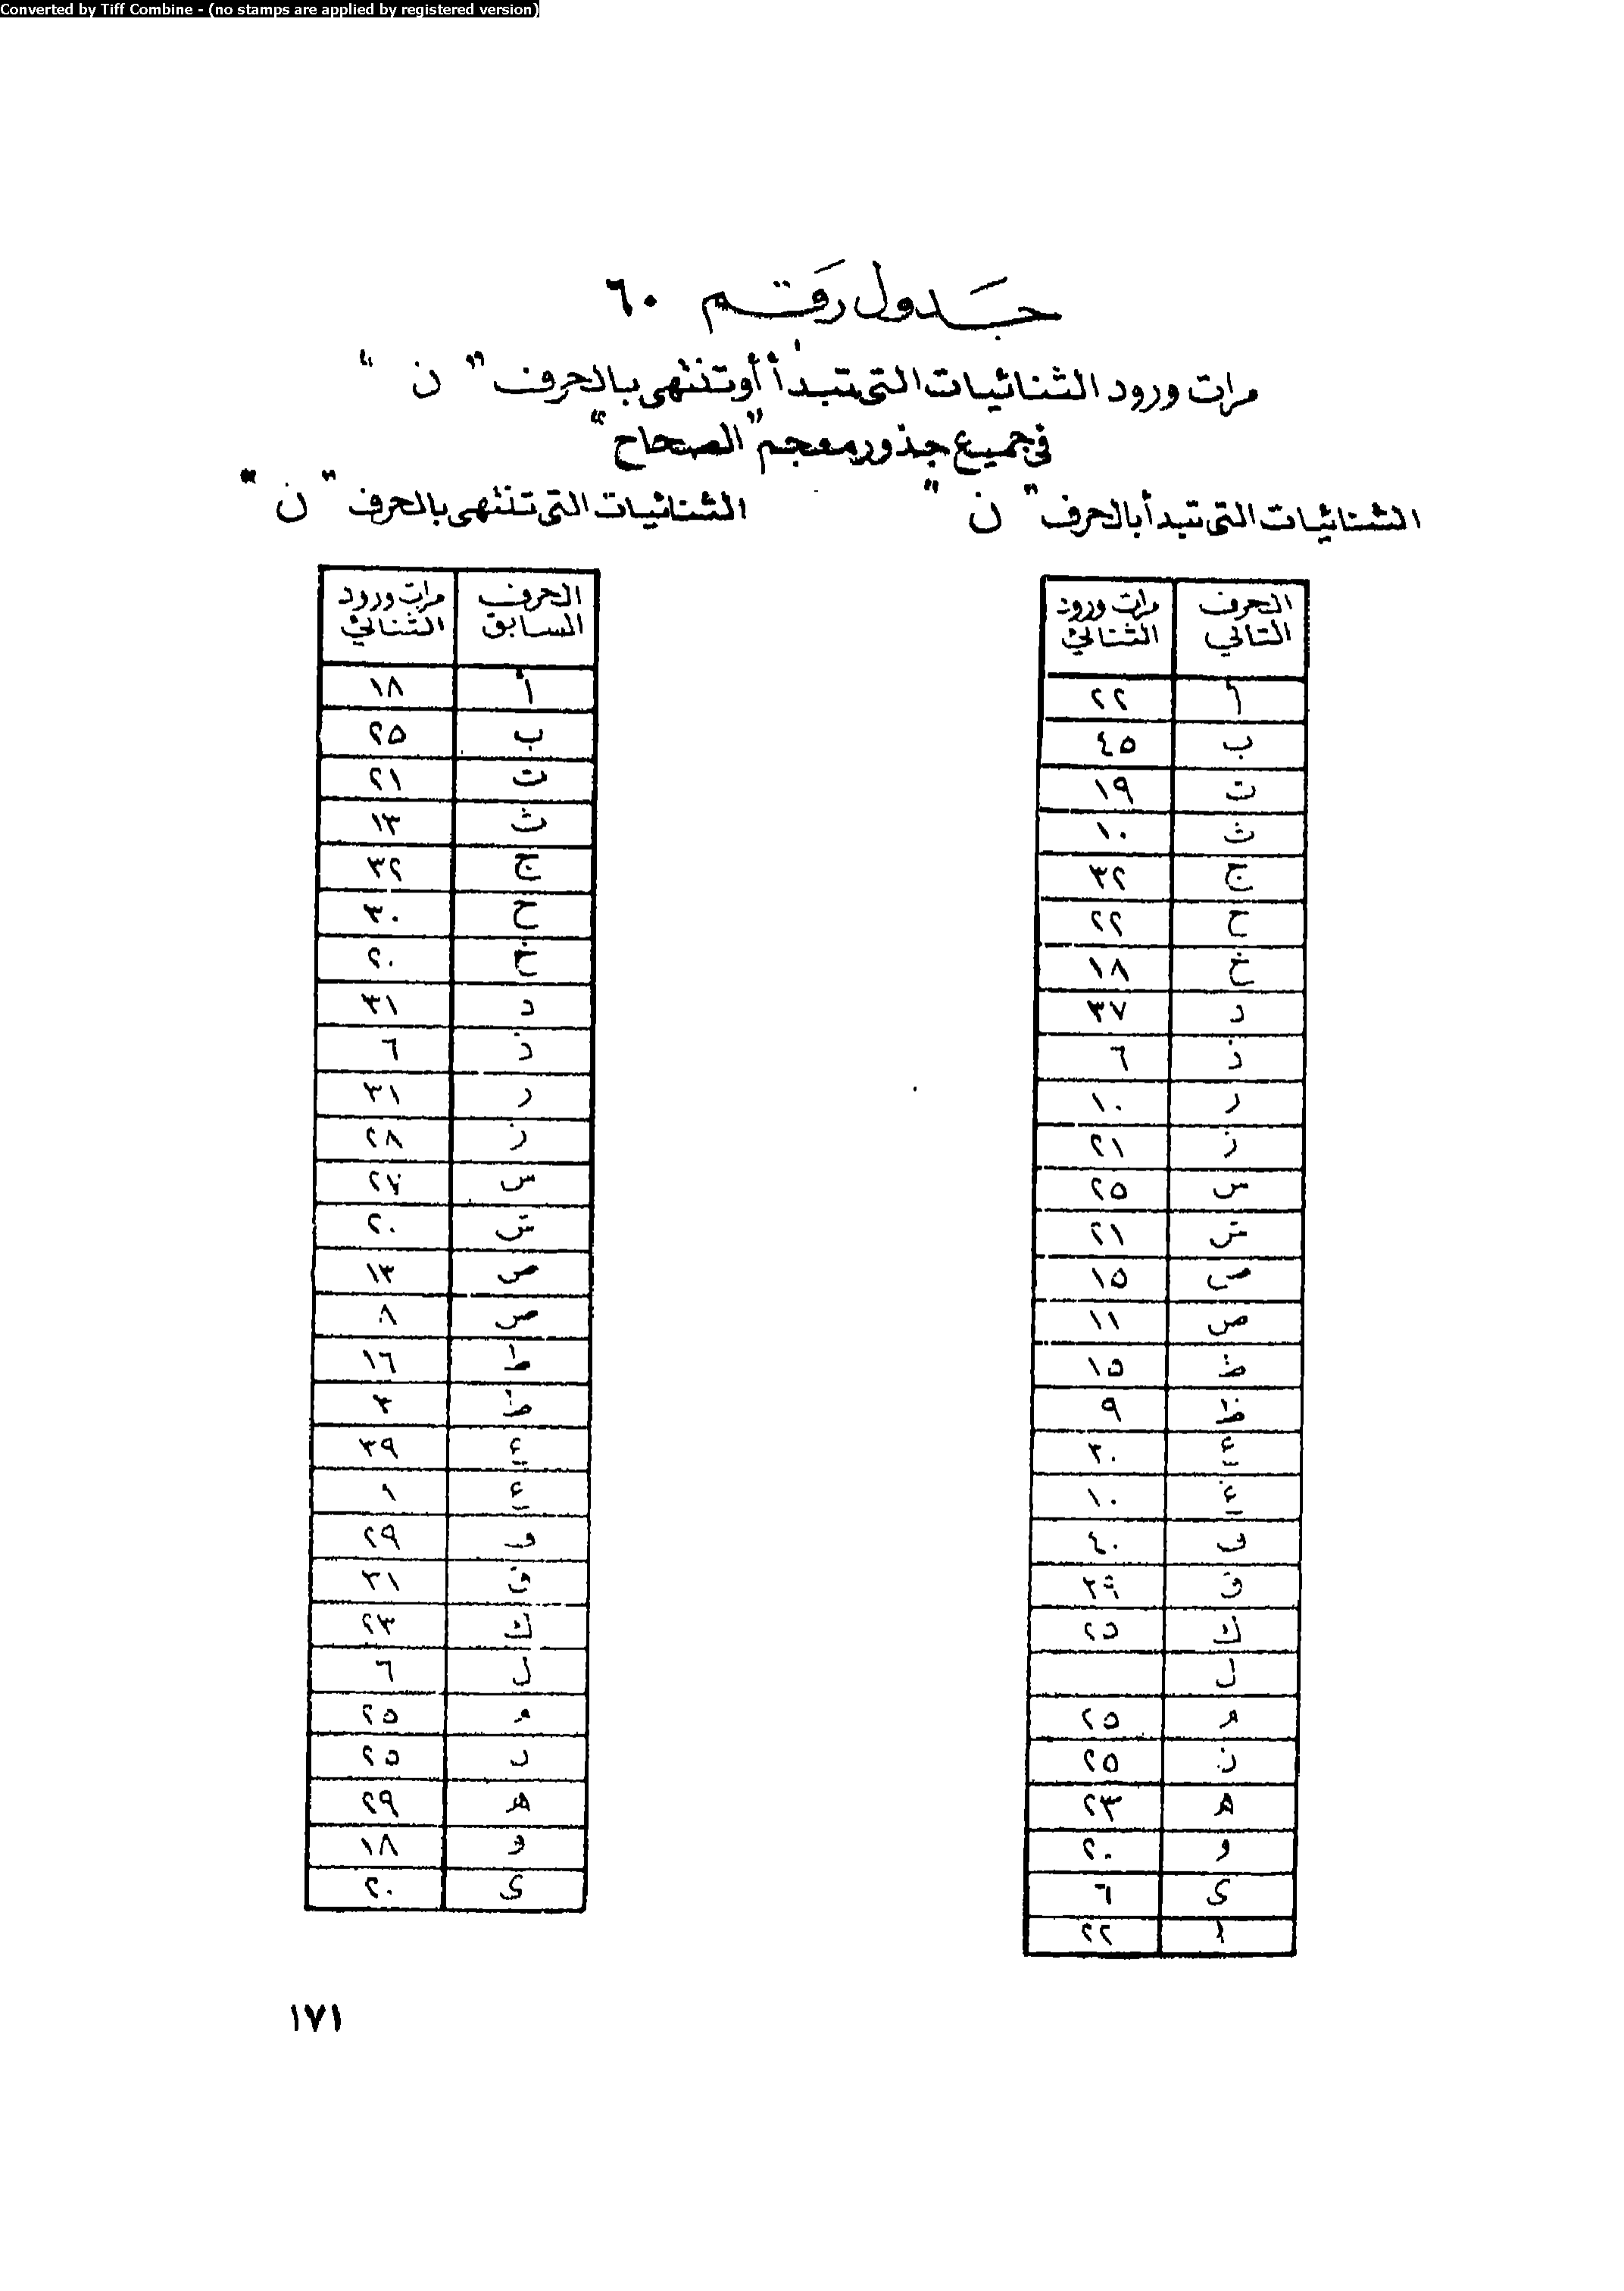 Converted by Tiff Combine - (no stamps are applied by registered version)
جَدول رَقم ٦٠
مرات ورود الثنائيات التى تبدأ أو تنتهى بالحرف " ن "
فى جميع جذور معجم "الصحاح"
الثنائيات التى تبدأ بالحرف " ن "
الحرف التالي مرات ورود الثنائي
أ ٢٢
ب ٤٥
ت ١٩
ث ١٠
ج ٣٢
ح ٢٢
خ ١٨
د ٣٧
ذ ٦
ر ١٠
ز ٢١
س ٢٥
ش ٢١
ص ١٥
ض ١١
ط ١٥
ظ ٩
ع ٣٠
غ ١٠
ف ٤٠
ق
ك ٢٥
ل
م ٢٥
ن ٢٥
ه ٢٣
و ٢٠
ى ٦
ا ٢٢
الثنائيات التى تنتهى بالحرف " ن "
الحرف السابق مرات ورود الثنائي
أ ١٨
ب ٢٥
ت ٢١
ث ١٣
ج ٣٢
ح ٣٠
خ ٢٠
د ٣١
ذ ٦
ر ٣١
ز ٢٨
س
ش ٢٠
ص ١٣
ض ٨
ط ١٦
ظ ٣
ع ٣٩
غ
ف ٢٩
ق ٣١
ك ٢٣
ل ٦
م ٢٥
ن ٢٥
ه ٢٩
و ١٨
ى ٢٠
١٧١